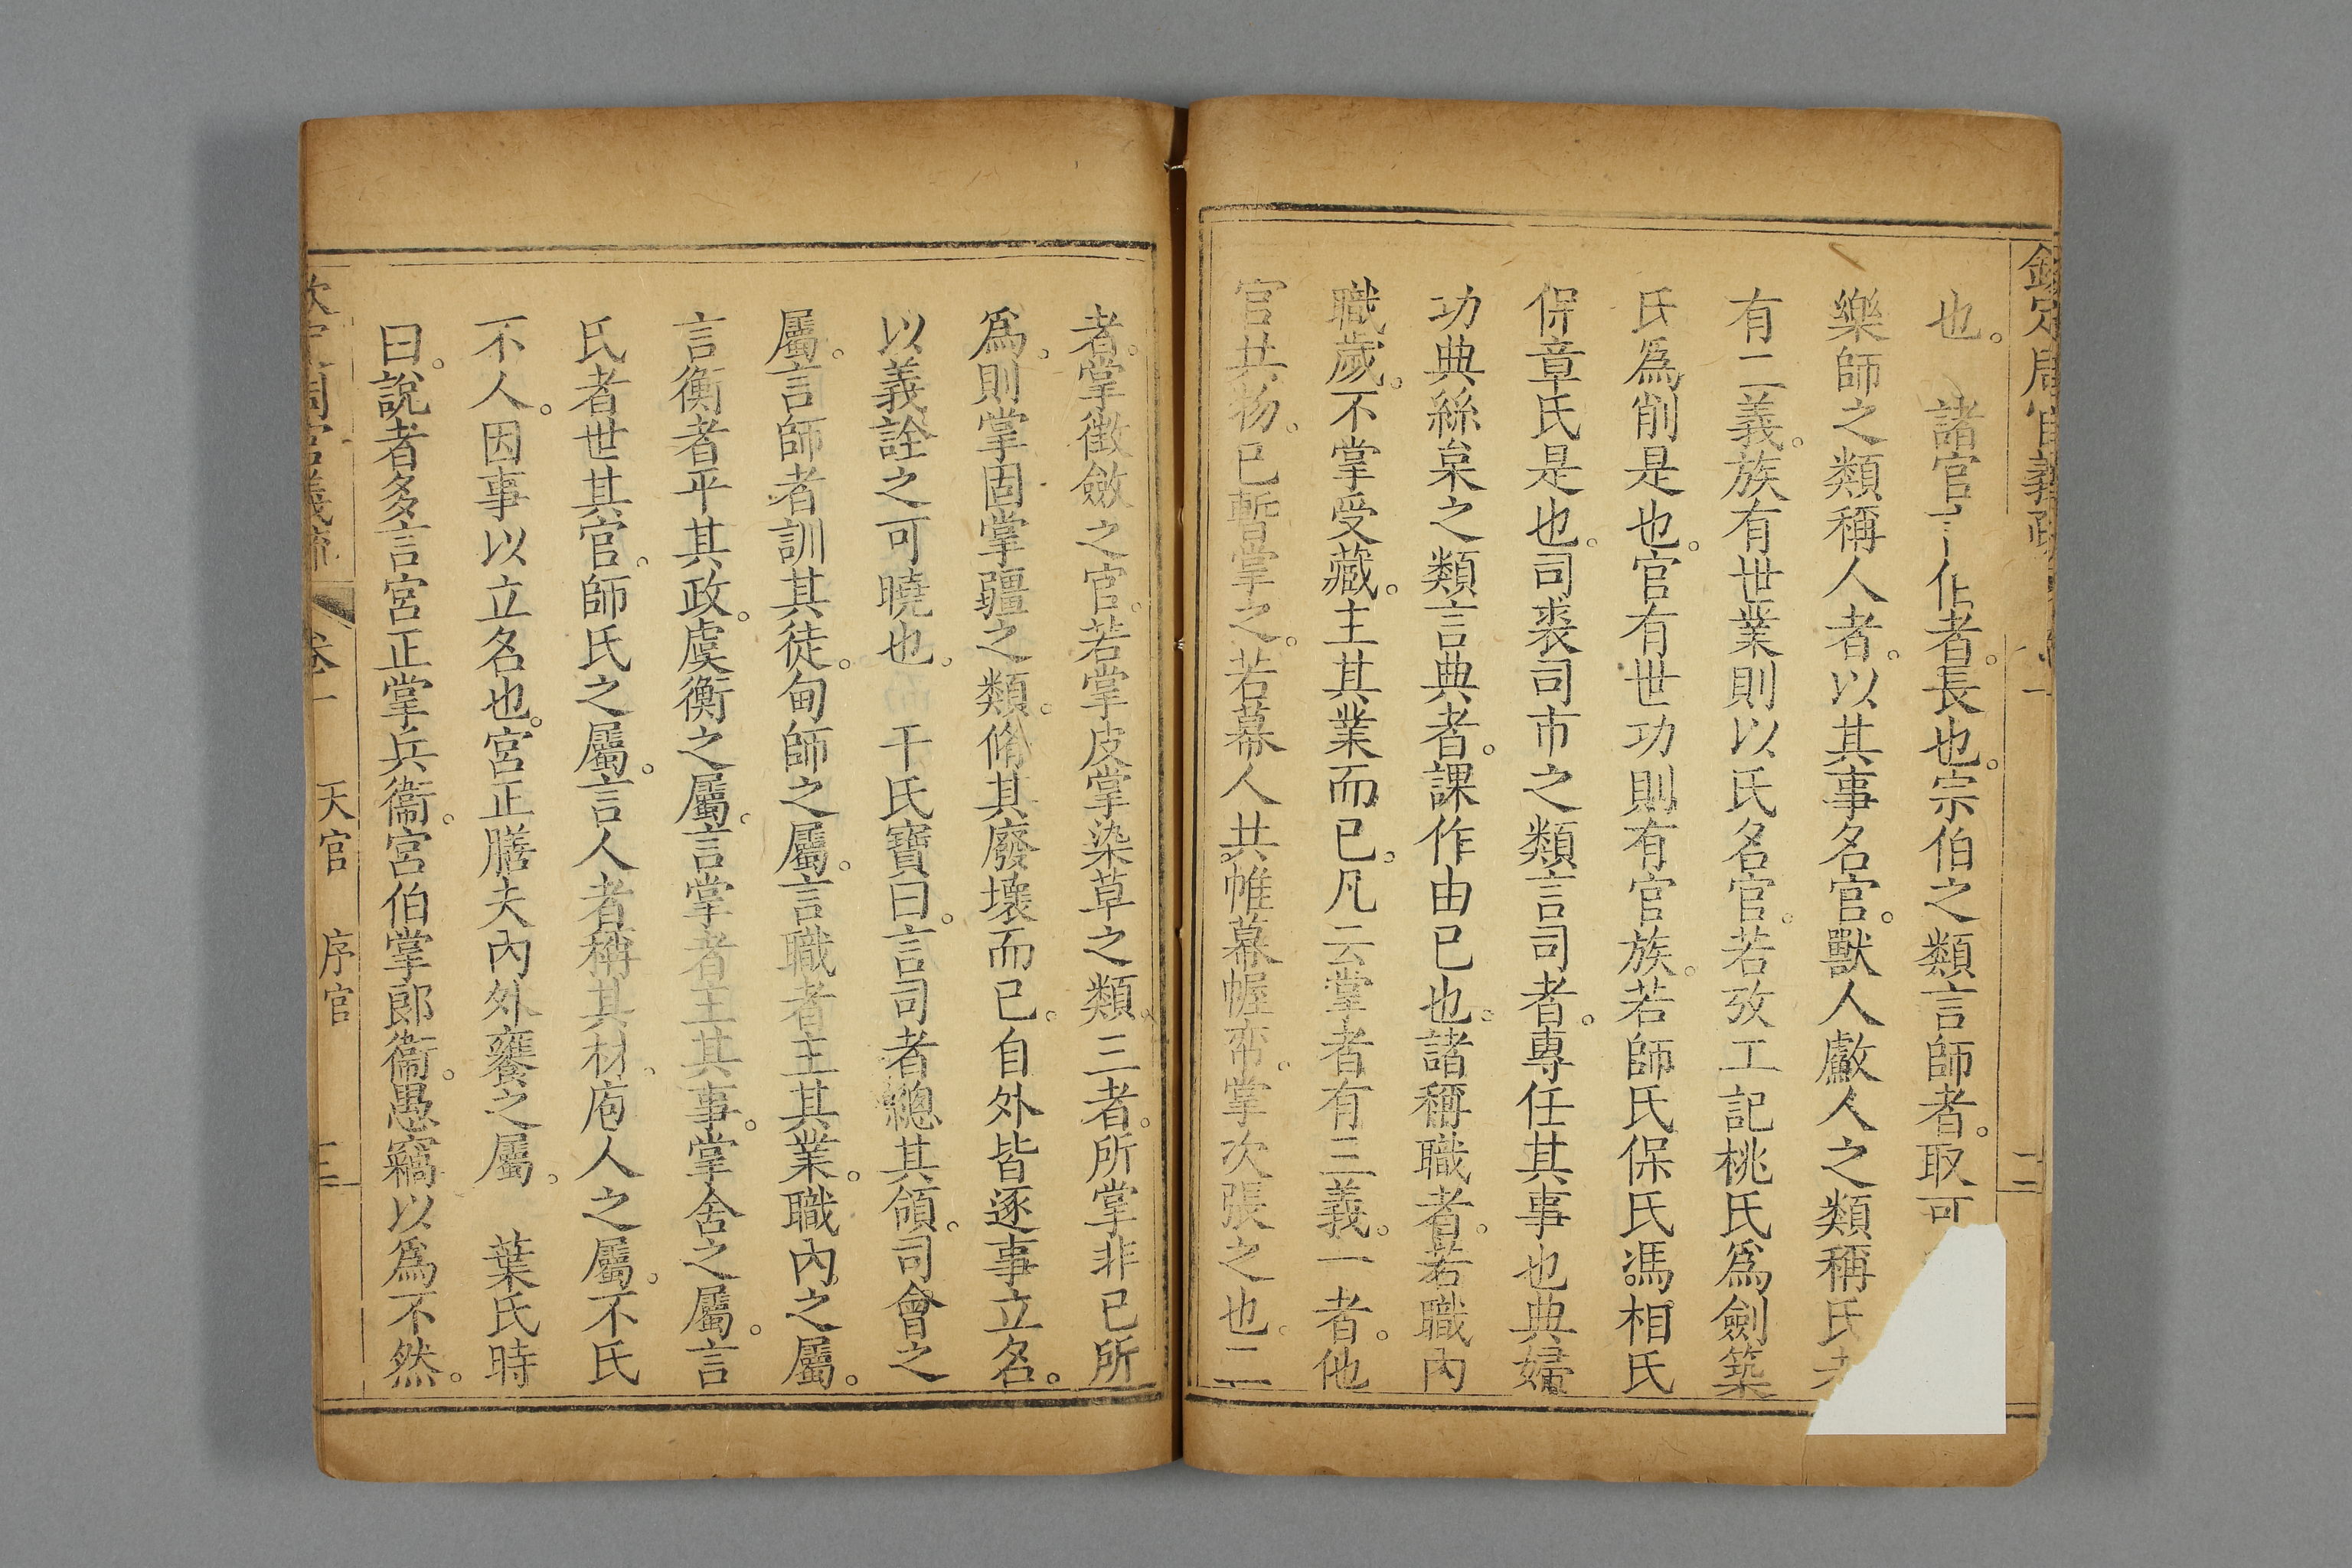 欽定周官義疏 一 二
也。諸官言伯者。長也。宗伯之類言師者。取可
樂師之類稱人者。以其事名官。獸人䱷人之類稱氏
有二義。族有世業則以氏名官。若攷工記桃氏爲劍築
氏爲削是也。官有世功則有官族。若師氏保氏馮相氏
保章氏是也。司裘司市之類言司者。專任其事也典婦
功典絲枲之類言典者。課作由已也。諸稱職者。若職內
職歲。不掌受藏。主其業而已。凡云掌者有三義。一者。他
官共物。已暫掌之。若幕人共帷幕幄帟。掌次張之也。二
者。掌徵斂之官。若掌皮掌染草之類。三者。所掌非已所
爲。則掌固掌疆之類。脩其廢壞而已。自外皆逐事立名。
以義詮之可曉也。干氏寶曰。言司者總其領。司會之
屬。言師者訓其徒。甸師之屬。言職者主其業。職內之屬。
言衡者平其政。虞衡之屬。言掌者主其事。掌舍之屬。言
氏者世其官。師氏之屬。言人者稱其材。庖人之屬。不氏
不人。因事以立名也。宮正膳夫內外饔之屬。葉氏時
曰。說者多言宮正掌兵衞。宮伯掌郞衞。愚竊以爲不然。
欽定周官義疏 卷一 天官 序官 二